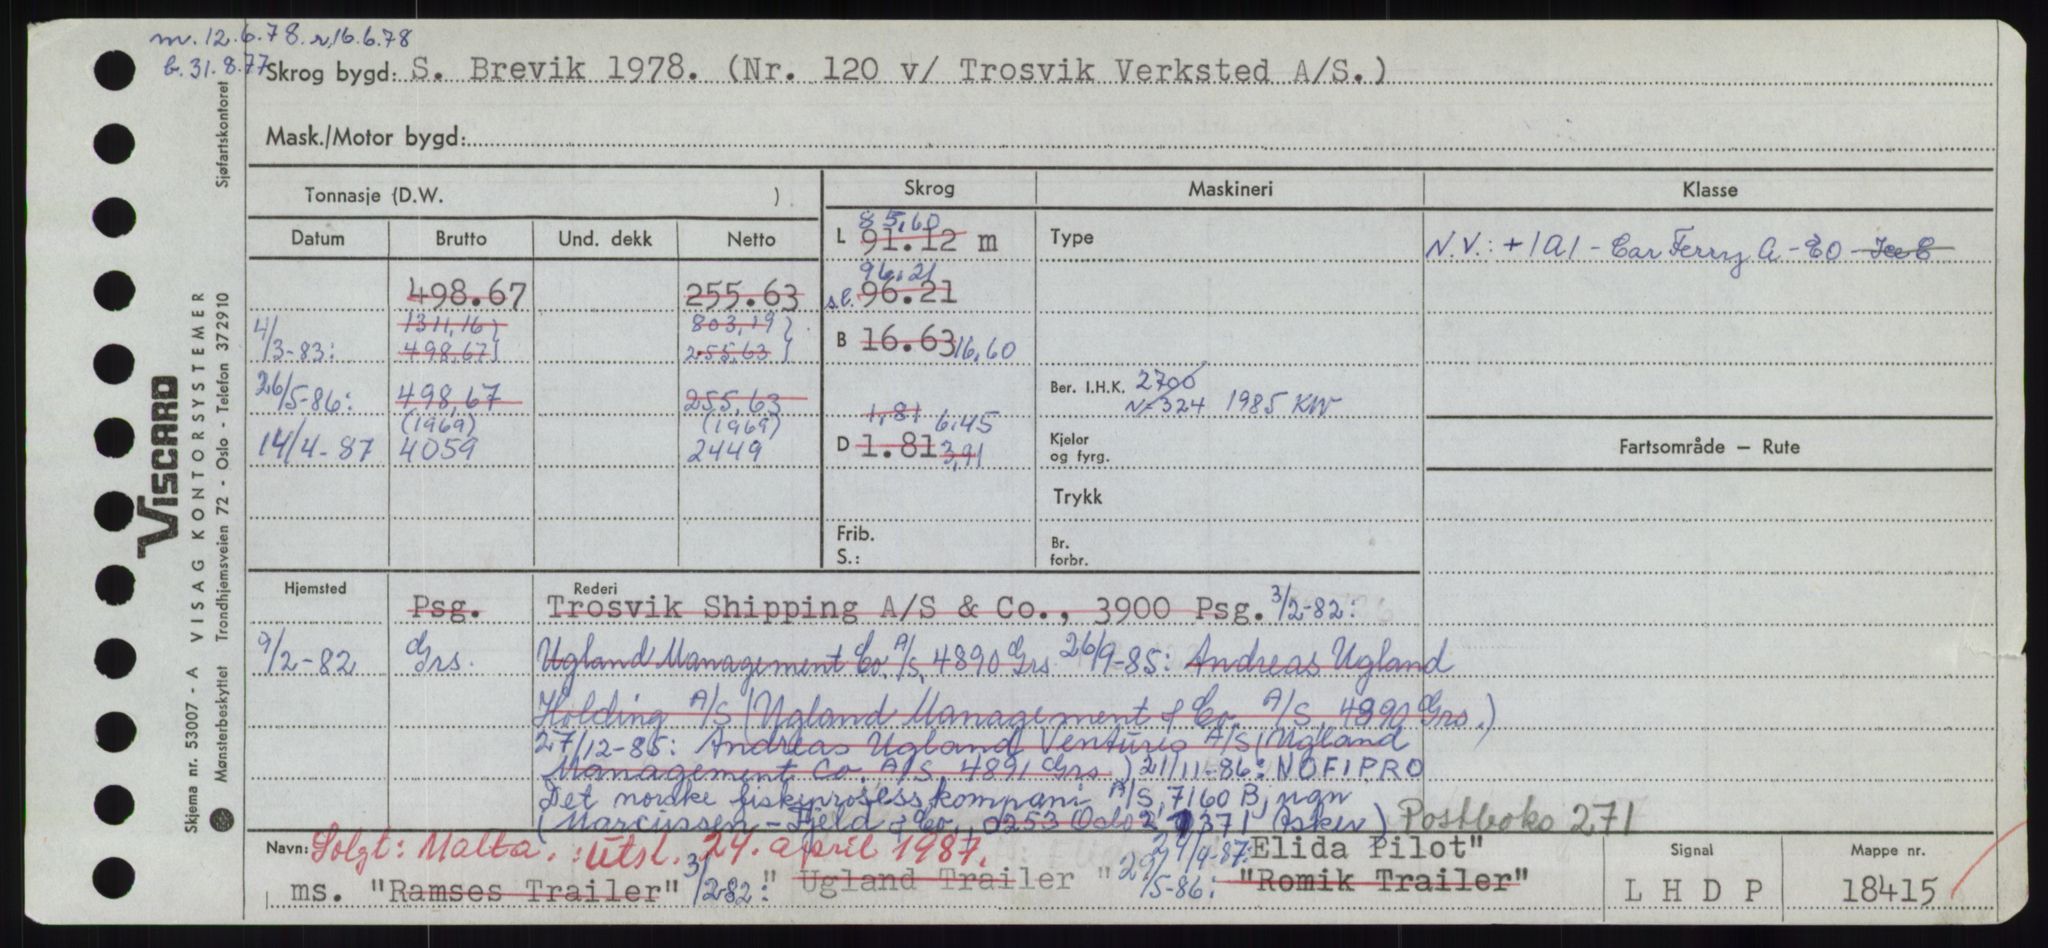 m. 12.6.78. r. 16.6.78
b. 31.8.77
Skrog bygd: S. Brevik 1978. (Nr. 120 v/ Trosvik Verksted A/S.)
Mask./Motor bygd:
Tonnasje (D.W. ) Skrog Maskineri Klasse
Datum Brutto Und. dekk Netto
L 85,60
91.12 m
Type
N.V.: +1A1 - Car Ferry A - EO - Ice C
498.67 255.63
96.21
s.l. 96.21
4/3-83: 1311,16} 803,19}
498,67} 255,63}
B 16.63 16,60
26/5-86: 498,67 255,63
Ber. I.H.K. 2700
N=324 1985 KW
(1969) (1969)
14/4-87 4059 2449
1,81 6.45
D 1.81 3,91
Kjeler
og fyrg.
Fartsområde — Rute
Trykk
Frib.
S.:
Br.
forbr.
Hjemsted Rederi
Psg. Trosvik Shipping A/S & Co., 3900 Psg. 3/2-82:
9/2-82 Grs. Ugland Management Co. A/S, 4890 Grs 26/9-85: Andreas Ugland
Holding A/S (Ugland Management & Co. A/S, 4890 Grs.)
27/12-85: Andreas Ugland Ventures A/S (Ugland
Management Co. A/S, 4891 Grs.) 21/11-86: NOFIPRO
Det norske fiskeprosess kompani A/S, 7160 B,
(Marcussen - Fjeld & Co., 0253 Oslo 2 1371 Asker) Postboks 271
Navn: Solgt: Malta. : utsl. 24. april 1987. 29/9-87: Elida Pilot"
ms. "Ramses Trailer" 3/2-82: "Ugland Trailer" 29/5-86: "Romik Trailer"
Signal
L H D P
Mappe nr.
18415
VISCARD
Skjema nr. 53007 - A VISAG KONTORSYSTEMER Sjøfartskontoret
Mønsterbeskyttet Trondhjemsveien 72 - Oslo - Telefon 372910